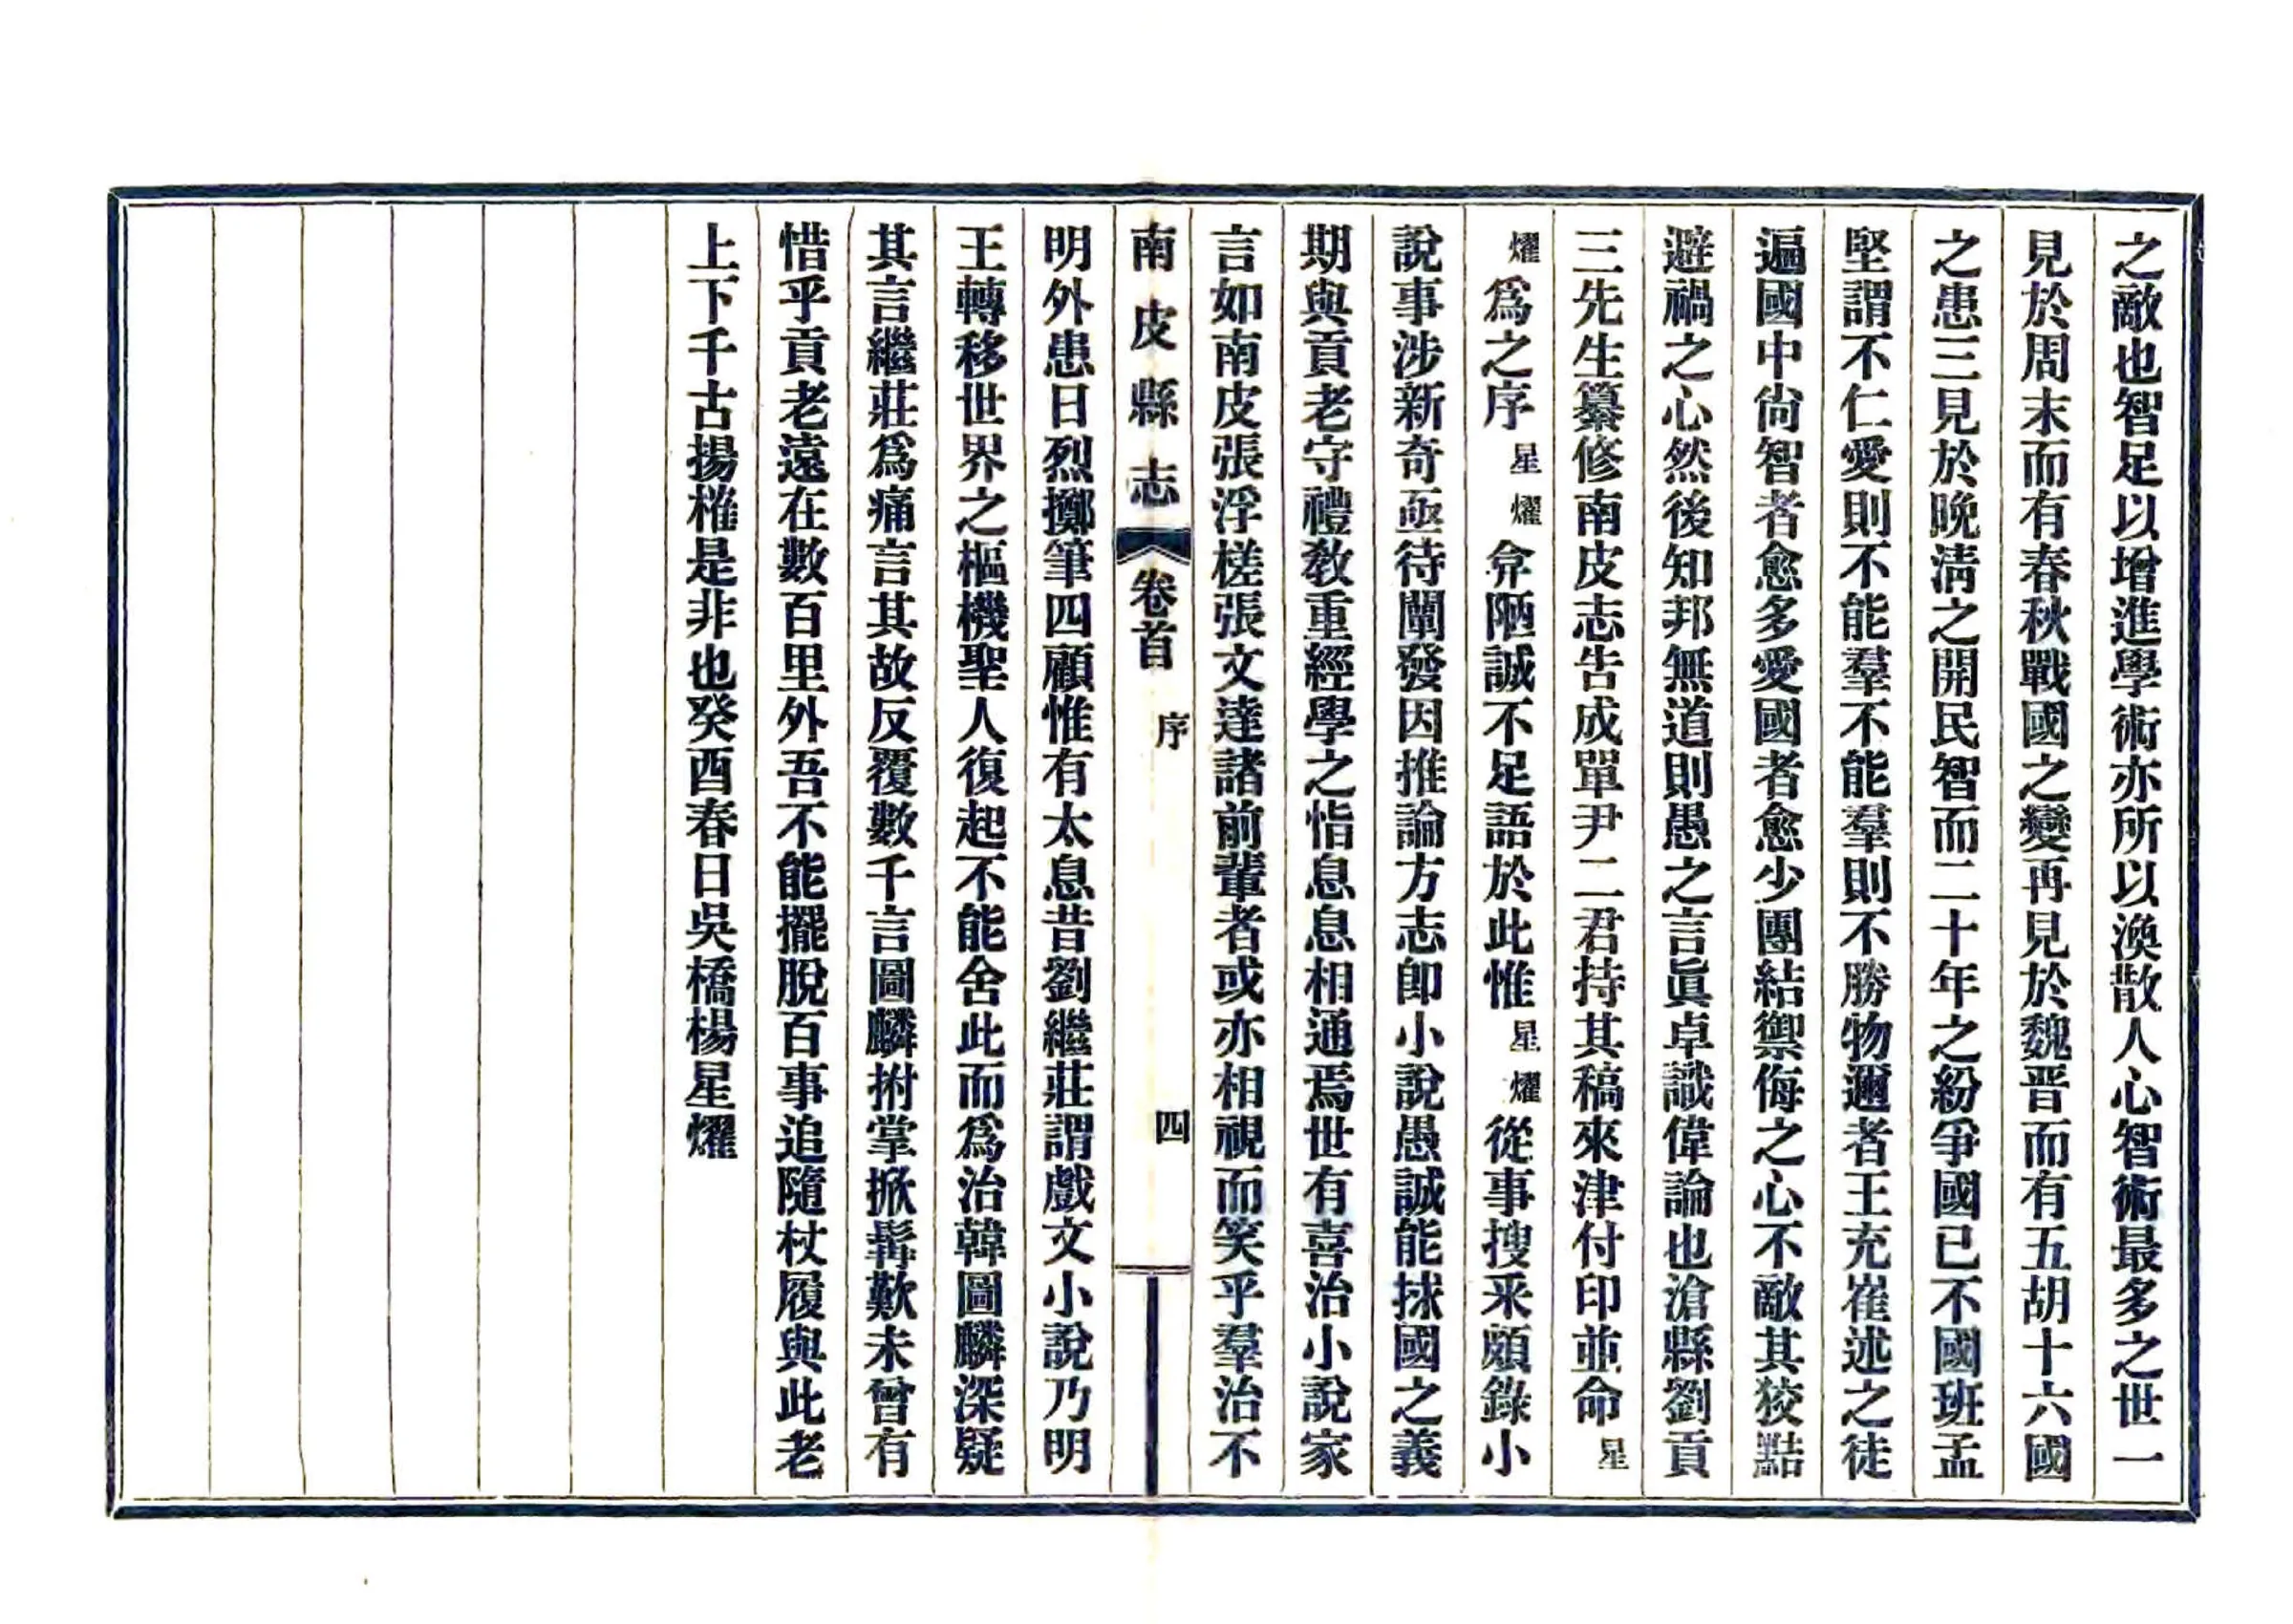 之敵也智足以增進學術亦所以渙散人心智術最多之世一
見於周末而有春秋戰國之變再見於魏晋而有五胡十六國
之患三見於晚淸之開民智而二十年之紛爭國已不國班孟
堅謂不仁愛則不能羣不能羣則不勝物邇者王充崔述之徒
遍國中尙智者愈多愛國者愈少團結禦侮之心不敵其狡黠
避禍之心然後知邦無道則愚之言眞卓識偉論也滄縣劉貢
三先生纂修南皮志告成單尹二君持其稿來津付印並命星
燿爲之序星燿弇陋誠不足語於此惟星燿從事搜釆頗錄小
說事涉新奇亟待闡發因推論方志卽小說愚誠能捄國之義
期與貢老守禮敎重經學之恉息息相通焉世有喜治小說家
言如南皮張浮槎張文達諸前輩者或亦相視而笑乎羣治不
南皮縣志 卷首 序 四
明外患日烈擲筆四顧惟有太息昔劉繼莊謂戲文小說乃明
王轉移世界之樞機聖人復起不能舍此而爲治韓圖麟深疑
其言繼莊爲痛言其故反覆數千言圖麟拊掌掀髯歎未曾有
惜乎貢老遠在數百里外吾不能擺脫百事追隨杖履與此老
上下千古揚榷是非也癸酉春日吳橋楊星燿